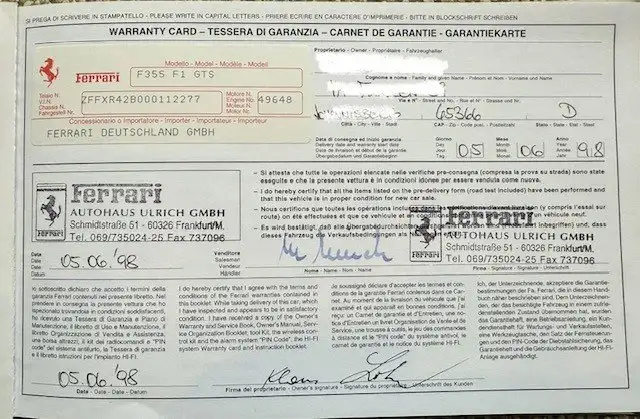 SI PREGA DI SCRIVERE IN STAMPATELLO - PLEASE WRITE IN CAPITAL LETTERS - PRIERE ECRIRE EN CARACTERE D'IMPRIMERIE - BITTE IN BLOCKSCHRIFT SCHREIBEN
WARRANTY CARD – TESSERA DI GARANZIA – CARNET DE GARANTIE - GARANTIEKARTE
Proprietario - Owner - Propriétaire - Fahrzeughalter
Modello - Model - Modèle - Modell
Ferrari
F355 F1 GTS
Cognome e nome - Family and given Name - Prénom et Nom - Vorname und Name
Telaio N.
V.I.N.
Chassis N.
Fahrgestell Nr.
ZFFXR42B000112277
Motore N.
Engine No
Moteur N.
Motor Nr.
49648
Via e N° - Street and No. - Rue et N° - Strasse und Nr.
45366
D
Concessionario o Importatore - Importer - Importateur - Importeur
Città - City - Ville - Stadt
CAP - Zip - Code post. - Postleitzahl
Stato - State - Etat - Staat
FERRARI DEUTSCHLAND GMBH
Data di consegna ed inizio garanzia
Delivery date and warranty start date
Date de livraison et début de la garantie
Übergabedatum und Garantiebeginn
Giorno
Day
Jour
Tag
05
Mese
Month
Mois
Monat
06
Anno
Year
Année
Jahr
98
– Si attesta che tutte le operazioni elencate nelle verifiche pre-consegna (compresa la prova su strada) sono state eseguite e che la presente vettura è in condizioni idonee per essere venduta come nuova.
– I do hereby certify that all the items listed on the pre-delivery form (road test included) have been performed and that this vehicle is in proper condition for new car sale.
– Nous certifions que toutes les opérations
(y compris l'essai sur route) on été effectuées et que ce véhicule
un véhicule neuf.
– Es wird bestätigt, daß alle
und, dass dieses Fahrzeug
Ferrari
AUTOHAUS ULRICH GMBH
Schmidtstraße 51 - 60326 Frankfurt/M.
Tel. 069/735024-25 Fax 737096
Ferrari
AUTOHAUS ULRICH GMBH
Schmidtstraße 51 - 60326 Frankfurt/M.
Tel. 069/735024-25 Fax 737096
Data
Date
Date
Datum
05.06.98
Venditore
Salesman
Vendeur
Händler
Nome - Name - Nom - Name
Firma - Signature - Signature - Unterschrift
Io sottoscritto dichiaro che accetto i termini della garanzia Ferrari contenuti nel presente libretto. Nel prendere in consegna la presente vettura che ho ispezionato trovandola in condizioni soddisfacenti, ho ricevuto una Tessera di Garanzia e Piano di Manutenzione, il libretto di Uso e Manutenzione, il libretto Organizzazione di Vendita e Assistenza, una borsa attrezzi, il kit dei radiocomandi e "PIN code" del sistema antifurto, la Tessera di garanzia e il libretto istruzioni per l'impianto HI-FI.
I do hereby certify that I agree with the terms and conditions of the Ferrari warranties contained in this booklet. While taking delivery of this car, which I have inspected and appears to be in satisfactory condition, I have received a copy of the Owner's Warranty and Service Book, Owner's Manual, Service Organization Booklet, tool Kit, the wireless control kit and the alarm system "PIN Code", the HI-FI system Warranty Card and instruction booklet.
Je soussigné déclare d'accepter les termes et conditions de la garantie Ferrari contenus dans ce Carnet. Au moment de la livraison du véhicule que j'ai examiné et qui apparait en bonnes conditions, j'ai reçu: un Carnet de garantie et d'Entretien, une notice d'Entretien un livret Organisation de Vente et de Service, une trousse à outils, le jeu des commandes à distance et le "PIN code" du système antivol, le carnet de garantie et la notice du système HI-FI.
Ich, der Unterzeichnete, akzeptiere die Garantiebestimmungen der Fa. Ferrari, die in diesem Handbuch näher beschrieben sind. Dem Unterzeichneten, der das bestätigte Fahrzeug in einem zufriedenstellenden Zustand übernommen hat, wurden das Garantieheft, eine Betriebsanleitung, ein Kundendienstheft für Wartungs- und Verkaufsstellen, eine Werkzeugtasche, den Satz der Fernsteuerungen und den PIN-Code der Diebstahlsicherung, das Garantieheft und die Gebrauchsanleitung der HI-FI-Anlage ausgehändigt.
05.06.98
Klaus
Data - Date - Date - Datum
Firma del proprietario - Owner's signature - Signature du propriétaire - Unterschrift des Kunden